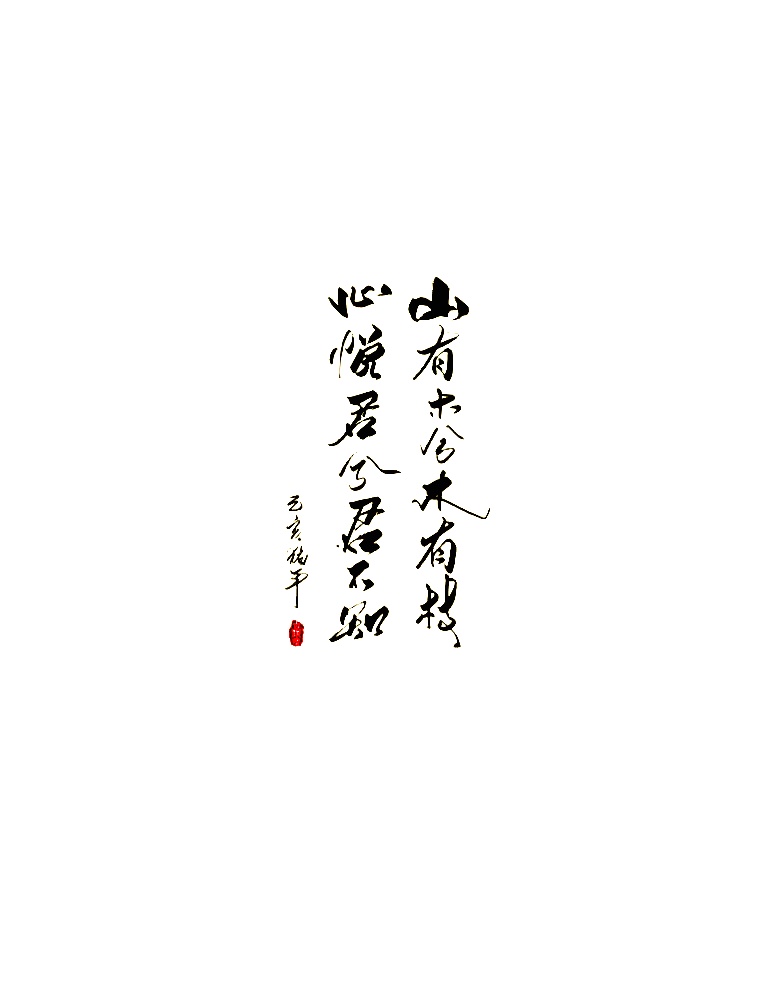 山有木兮木有枝
心悦君兮君不知
己亥